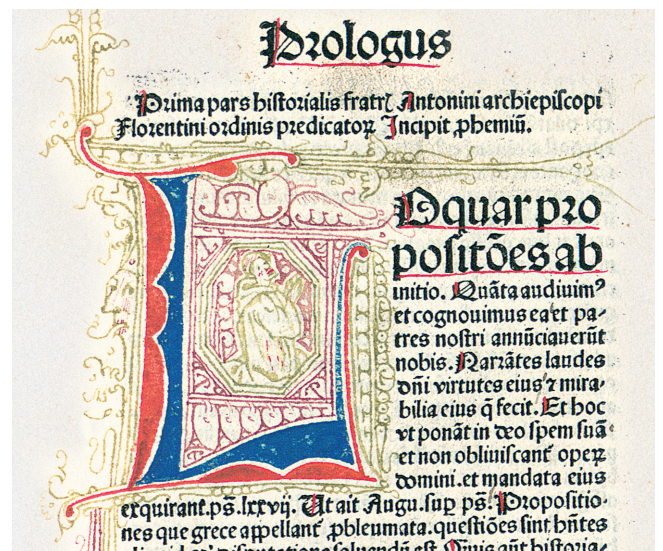 Prologus
Prima pars historialis fratrꝭ Antonini archiepiscopi
Florentini ordinis predicatoꝝ Incipit ꝓhemiũ.
LOquar pro
positões ab
initio. Quãta audiuimꝰ
et cognouimus ea et pa-
tres nostri annũciauerũt
nobis. Narrãtes laudes
dñi virtutes eius ⁊ mira-
bilia eius q̃ fecit. Et hoc
vt ponãt in deo spem suã
et non obliuiscant᷑ operꝝ
domini. et mandata eius
exquirant. ps̃. lxxvij. Ut ait Augu. suꝑ ps̃. Propositio-
nes que grece appellant᷑ ꝓbleumata. questiões sint hñtes
soluendũ est. Quis aũt historia-